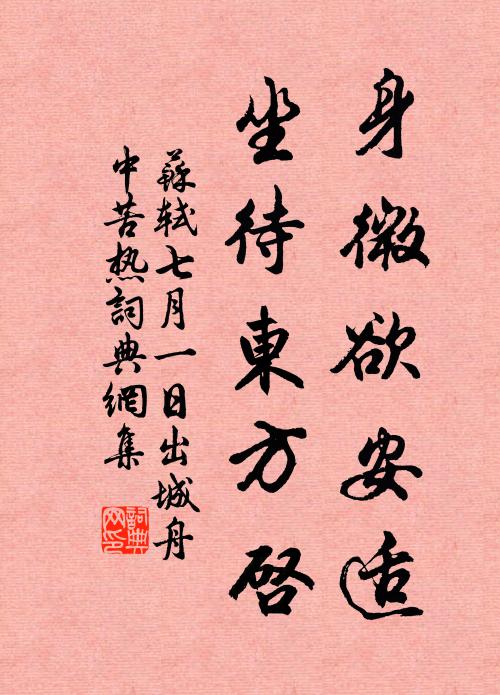 身微欲安适
坐待東方啓
蘇軾七月一日出城舟
中苦热詞典網集
詞典
网印